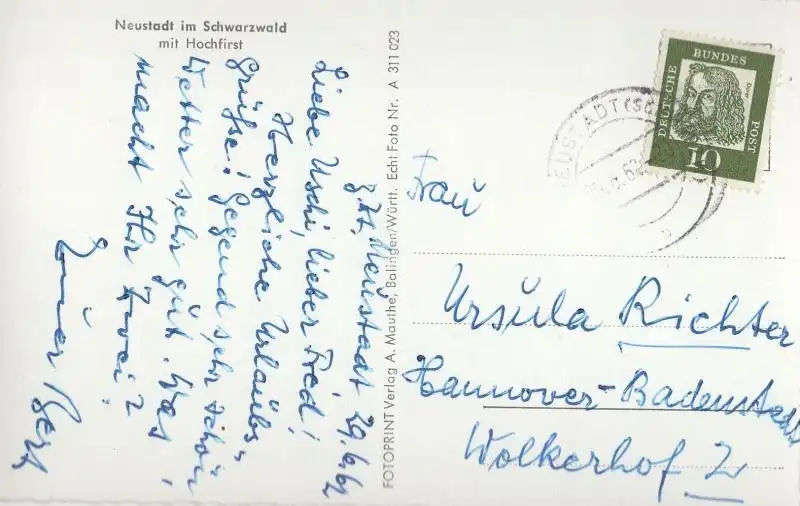 Neustadt im Schwarzwald
mit Hochfirst
z.Zt. Neustadt, 29.6.62
Liebe Uschi, lieber Fred!
Herzliche Urlaubs-
grüße! Gegend sehr schön
Wetter sehr gut. Was
macht Ihr Zwei?
Euer
FOTOPRINT Verlag A. Mauthe, Balingen/Württ. Echt Foto Nr. A 311 023
DEUTSCHE
BUNDES
POST
10
NEUSTADT (SC
62
Frau
Ursula Richter
Hannover-Badenstedt
Wolkerhof 2